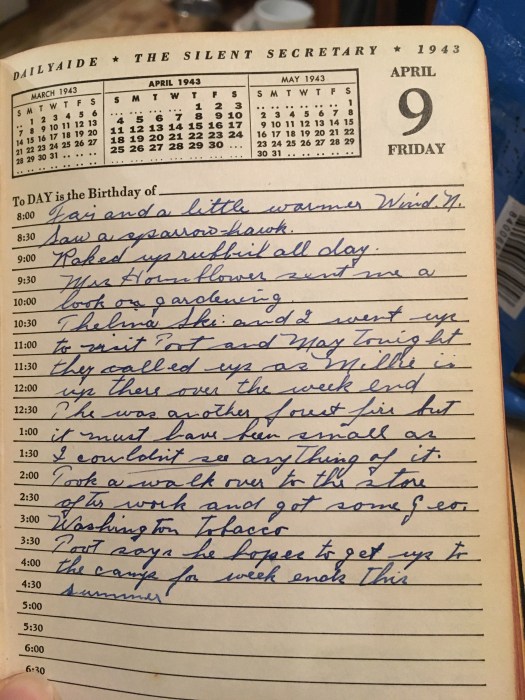 DAILYAIDE ★ THE SILENT SECRETARY ★ 1943
MARCH 1943
S M T W T F S
.. 1 2 3 4 5 6
7 8 9 10 11 12 13
14 15 16 17 18 19 20
21 22 23 24 25 26 27
28 29 30 31 .. .. ..
APRIL 1943
S M T W T F S
.. .. .. .. 1 2 3
4 5 6 7 8 9 10
11 12 13 14 15 16 17
18 19 20 21 22 23 24
25 26 27 28 29 30 ...
MAY 1943
S M T W T F S
.. .. .. .. .. .. 1
2 3 4 5 6 7 8
9 10 11 12 13 14 15
16 17 18 19 20 21 22
23 24 25 26 27 28 29
30 31 .. .. .. .. ..
APRIL
9
FRIDAY
To DAY is the Birthday of
8:00 Fair and a little warmer Wind. N.
8:30 Saw a sparrow-hawk.
9:00 Raked up rubbish all day.
9:30 Mrs Hornblower sent me a
10:00 book on gardening.
10:30 Thelma Ski: and I went up
11:00 to visit Poot and May Tonight
11:30 they called up as Millie is
12:00 up there over the week end
12:30 The was another forest fire but
1:00 it must have been small as
1:30 I couldn't see anything of it.
2:00 Took a walk over to the store
2:30 after work and got some Geo.
3:00 Washington Tobacco
3:30 Poot says he hopes to get up to
4:00 the camp for week ends This
4:30 summer
5:00
5:30
6:00
6:30